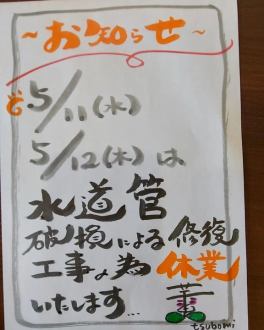 ～お知らせ～
5/11(水)
5/12(木)は
水道管
破損による修復
工事の為休業
いたします...
tsubomi